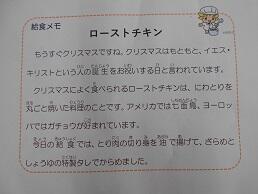 給食メモ
ローストチキン
もうすぐクリスマスですね。クリスマスはもともと、イエス・
キリストという人の誕生をお祝いする日と言われています。
クリスマスによく食べられるローストチキンは、にわとりを
丸ごと焼いた料理のことです。アメリカでは七面鳥、ヨーロッ
パではガチョウが好まれています。
今日の給食では、とり肉の切り身を油で揚げて、ざらめと
しょうゆの特製タレでからめました。